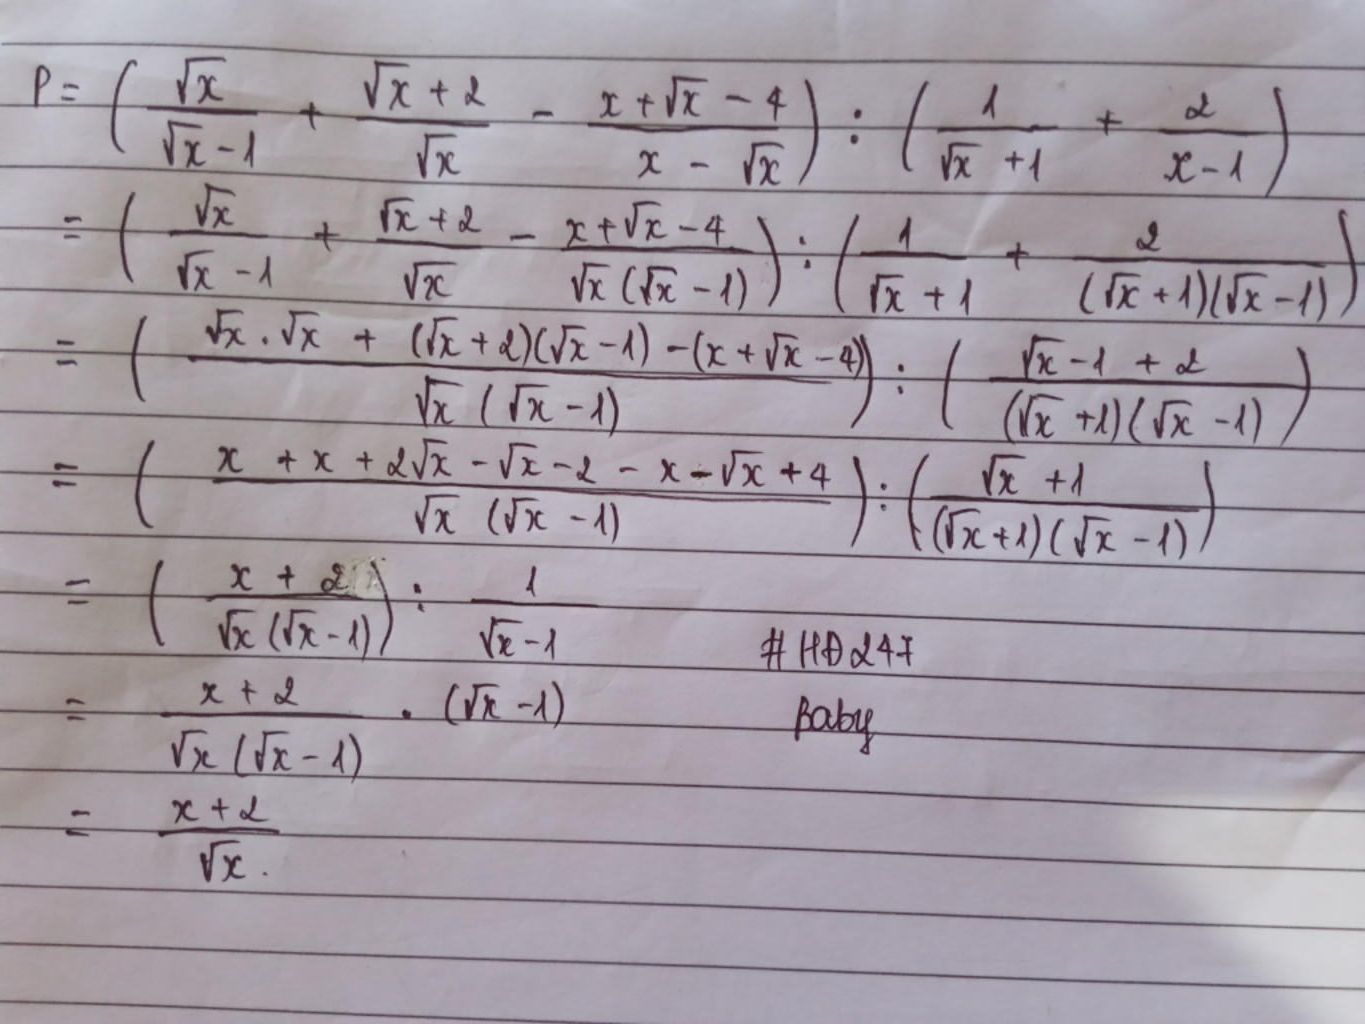 P = ( √x / (√x - 1) + (√x + 2) / √x - (x + √x - 4) / (x - √x) ) : ( 1 / (√x + 1) + 2 / (x - 1) )
= ( √x / (√x - 1) + (√x + 2) / √x - (x + √x - 4) / (√x (√x - 1)) ) : ( 1 / (√x + 1) + 2 / ((√x + 1)(√x - 1)) )
= ( (√x . √x + (√x + 2)(√x - 1) - (x + √x - 4)) / (√x (√x - 1)) ) : ( (√x - 1 + 2) / ((√x + 1)(√x - 1)) )
= ( (x + x + 2√x - √x - 2 - x - √x + 4) / (√x (√x - 1)) ) : ( (√x + 1) / ((√x + 1)(√x - 1)) )
= ( (x + 2) / (√x (√x - 1)) ) : 1 / (√x - 1)
# HĐ247
= (x + 2) / (√x (√x - 1)) . (√x - 1)
Baby
= (x + 2) / √x .